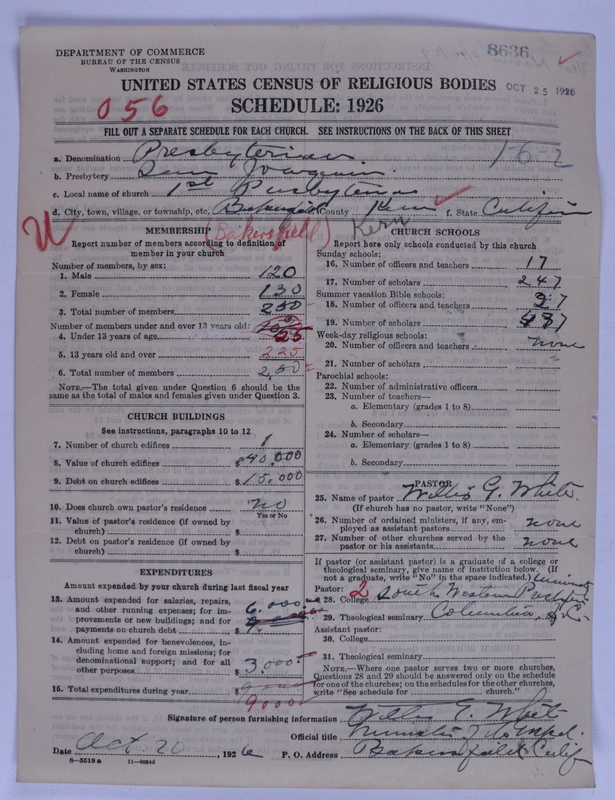 8636
DEPARTMENT OF COMMERCE
BUREAU OF THE CENSUS
WASHINGTON
UNITED STATES CENSUS OF RELIGIOUS BODIES
OCT 25 1926
056
SCHEDULE: 1926
FILL OUT A SEPARATE SCHEDULE FOR EACH CHURCH. SEE INSTRUCTIONS ON THE BACK OF THIS SHEET
a. Denomination Presbyterian
1-6-2
b. Presbytery San Joaquin
c. Local name of church 1st Presbyterian
d. City, town, village, or township, etc. Bakersfield County Kern f. State Calif
(Bakersfield) Kern
MEMBERSHIP
Report number of members according to definition of
member in your church
Number of members, by sex:
1. Male 120
2. Female 130
3. Total number of members 250
Number of members under and over 13 years old:
4. Under 13 years of age 25
5. 13 years old and over 225
6. Total number of members 250
NOTE.—The total given under Question 6 should be
same as the total of males and females given under Question 3.
CHURCH BUILDINGS
See instructions, paragraphs 10 to 12
7. Number of church edifices 1
8. Value of church edifices $40,000
9. Debt on church edifices $15,000
10. Does church own pastor's residence no
Yes or No
11. Value of pastor's residence (if owned by
church) $
12. Debt on pastor's residence (if owned by
church) $
EXPENDITURES
Amount expended by your church during last fiscal year
13. Amount expended for salaries, repairs,
and other running expenses; for im-
provements or new buildings; and for
payments on church debt 6,000
14. Amount expended for benevolences, in-
cluding home and foreign missions; for
denominational support; and for all
other purposes $3,000
15. Total expenditures during year $9000
CHURCH SCHOOLS
Report here only schools conducted by this church
Sunday schools:
16. Number of officers and teachers 17
17. Number of scholars 247
Summer vacation Bible schools:
18. Number of officers and teachers
19. Number of scholars
Week-day religious schools:
20. Number of officers and teachers none
21. Number of scholars
Parochial schools:
22. Number of administrative officers
23. Number of teachers—
a. Elementary (grades 1 to 8)
b. Secondary
24. Number of scholars—
a. Elementary (grades 1 to 8)
b. Secondary
PASTOR
25. Name of pastor Willis G. White
(If church has no pastor, write "None")
26. Number of ordained ministers, if any, em-
ployed as assistant pastors none
27. Number of other churches served by the
pastor or his assistants none
If pastor (or assistant pastor) is a graduate of a college or
theological seminary, give name of institution below. (If
not a graduate, write "No" in the space indicated.)
Pastor: 2
28. College South Western
29. Theological seminary Columbia, S.C.
Assistant pastor:
30. College
31. Theological seminary
NOTE.—Where one pastor serves two or more churches,
Questions 28 and 29 should be answered only on the schedule
for one of the churches; on the schedules for the other churches,
write "See schedule for church."
Signature of person furnishing information Willis G. White
Official title Minister
Date Oct. 20, 1926 P. O. Address Bakersfield Calif
8—5518 a